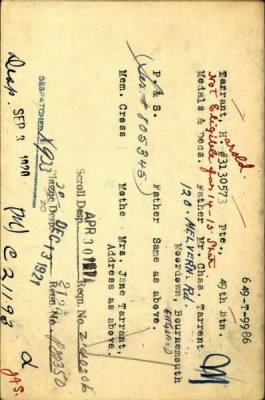 649-T-9986
Tarrant, Harold. #3130573 Pte. 49th Btn.
Not Eligible for 14-15 Star
Medals & Decs. Father Mr. Chas. Tarrant,
120, MELVERN. Rd.
Moordown, Bournemouth
ENGLAND
P. & S. Father Same as above.
(Ser # 805345)
Mem. Cross Mothe Mrs. Jane Tarrant,
Address as above.
Scroll Desp. APR 30 1921 Reqn. No.
DESPATCHED
Plaque Desp. DEC 13 1921 Reqn. No. P
Desp. SEP 3 1920 (M) C 21193